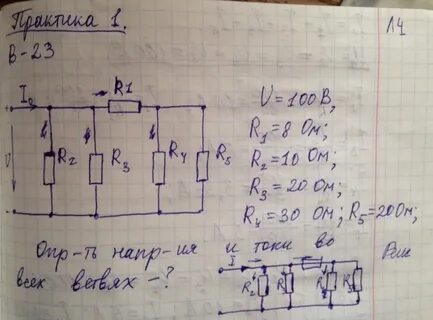 Практика 1.
14
В-23
I₀
R1
R2
R3
R4
R5
U
U = 100 В;
R₁ = 8 Ом;
R₂ = 10 Ом;
R₃ = 20 Ом;
R₄ = 30 Ом; R₅ = 20 Ом;
Опр-ть напр-ия и токи во
всех ветвях - ?
I